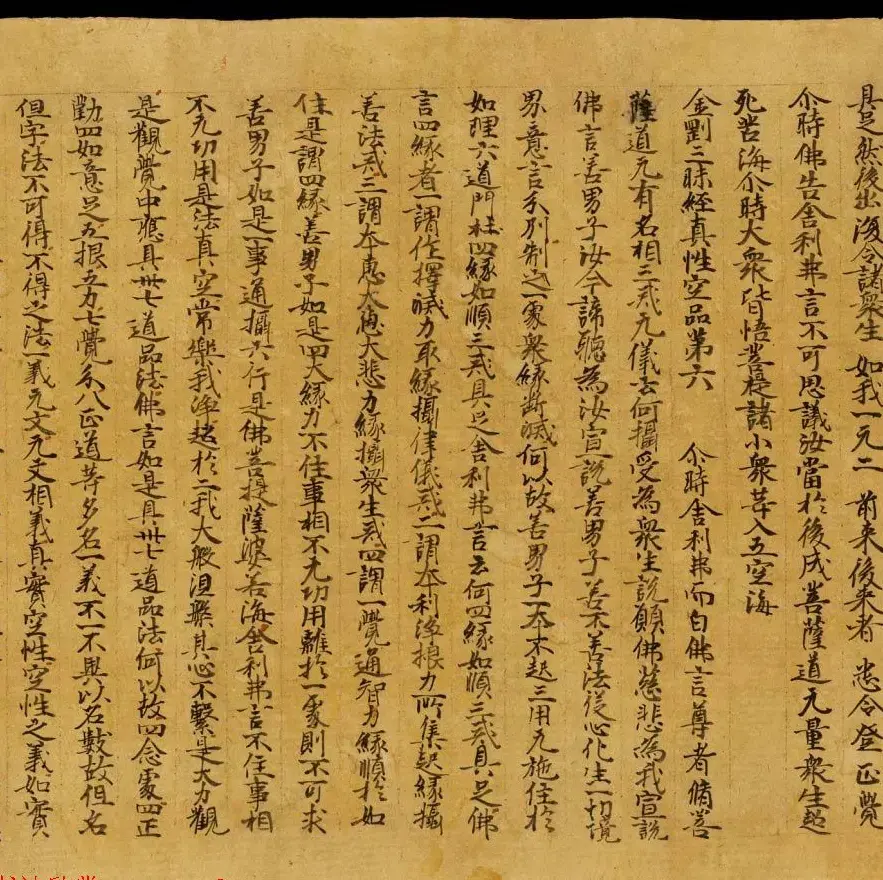 具足然後出彼令諸衆生如我一无二前来後来者悉令登正覺
尒時佛告舍利弗言不可思議汝當於後成菩薩道无量衆生超
死苦海尒時大衆皆悟菩提諸小衆等入五空海
金剛三昧經真性空品第六 尒時舍利弗而白佛言尊者脩菩
薩道无有名相三戒无儀云何攝受為衆生説願佛慈悲為我宣説
佛言善男子汝今諦聽為汝宣説善男子善不善法從心化生一切境
界意言分別制之一處衆緣斷滅何以故善男子一本不起三用无施住於
如理六道門杜四緣如順三戒具足舍利弗言云何四緣如順三戒具足佛
言四緣者一謂作擇滅力取緣攝律儀戒二謂本利淨根力所集起緣攝
善法戒三謂本恵大悲力緣攝衆生戒四謂一覺通智力緣順於如
住是謂四緣善男子如是四大緣力不住事相不无功用離於一處則不可求
善男子如是一事通攝六行是佛菩提薩婆若海舍利弗言不住事相
不无功用是法真空常樂我淨超於二我大般涅槃其心不繫是大力觀
是觀覺中應具卅七道品法佛言如是具卅七道品法何以故四念處四正
勤四如意足五根五力七覺分八正道等多名一義不一不異以名數故但名
但字法不可得不得之法一義无文无文相義真實空性空性之義如實